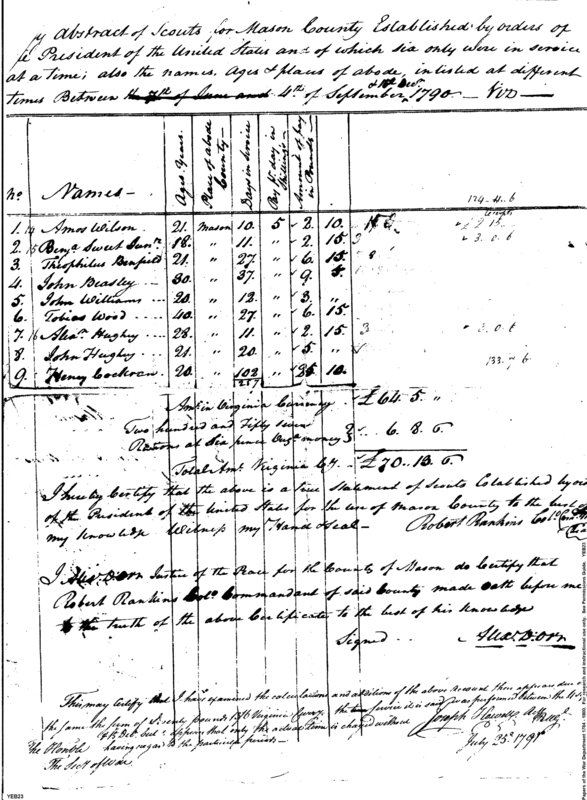 Abstract of Scouts for Mason County Established by orders of
President of the United States and of which six only were in service
at a time; also the names, Ages & places of abode, inlisted at different
times Between the 7th of June and 4th of September & 18th Decr. 1790 — Viz —
No. Names — Ages Years. Place of abode County Days in service Pay pr. day in Shillings Amount of pay in Pounds
1. 14 Amos Wilson 21. Mason 10. 5 2. 10.
2. 15 Benja. Sweet Junr. 18. " 11. " 2. 15.
3. Theophilus Benfield 21. " 27. " 6. 15.
4. John Beasley 30. " 37. " 9. 5.
5. John Williams 20. " 12. " 3. "
6. Tobias Wood 40. " 27. " 6. 15.
7. 16 Alexr. Hughey 28. " 11. " 2. 15
8. John Hughey 21. " 20. " 5 "
9. Henry Cochran 20. " 102 " 25 10.
257
Amt. in Virginia Currency £64. 5. "
Two hundred and Fifty seven
Rations at Six pence Virga. money 6. 8. 6
Total Amt. Virginia Cy. £70. 13. 6
I hereby Certify that the above is a true Statement of Scouts Established by
of the President of the United States for the use of Mason County to the best
my knowledge Witness my Hand & Seal — Robert Rankins Colo.
I Alexr. D. Orr Justice of the Peace for the County of Mason do Certify that
Robert Rankins Colo. Commandant of said County made Oath before me
to the truth of the above Certificate to the best of his knowledge
Signed Alexr. D. Orr
This may Certify that I have examined the calculations and additions of the above Account
the same the sum of Seventy pounds 13/6 Virginia Curry. the service it is said was performed between the
appears that only the actual time is charged without
having regard to the particular periods —
The Honble. Joseph Howell
The Secy of War July 25th 1791
YEB23